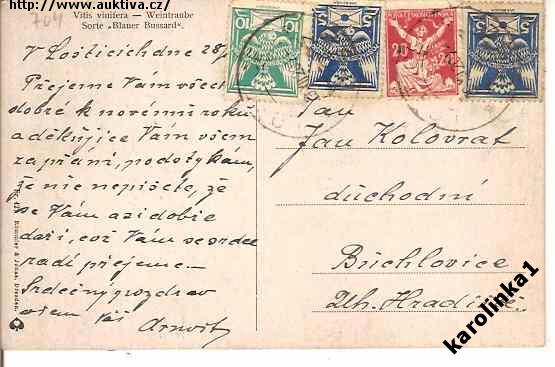 http://www.auktiva.cz
704
Vitis vinifera — Weintraube
Sorte „Blauer Bussard“.
V Lošticích dne 28/
Přejeme Vám všech
dobré k novému roku
a děkujíce Vám všem
za přání, podotýkám,
že nic nepíšete, že
se Vám asi dobře
daří, což Vám se srdce
rádi přejeme.—
Srdečný pozdrav
všem Váš
Arnošt
Pan
Jan Kolovrat
důchodní
Buchlovice
Uh. Hradiště
10
10
5
20
20
5
Stengel
karolinka1